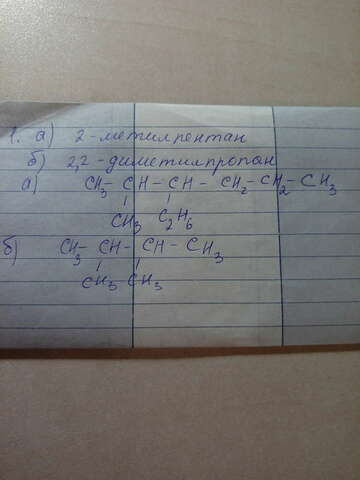 1. а) 2-метилпентан
б) 2,2-диметилпропан
а) CH₃-CH-CH-CH₂-CH₂-CH₃
CH₃ C₂H₆
б) CH₃-CH-CH-CH₃
CH₃ CH₃